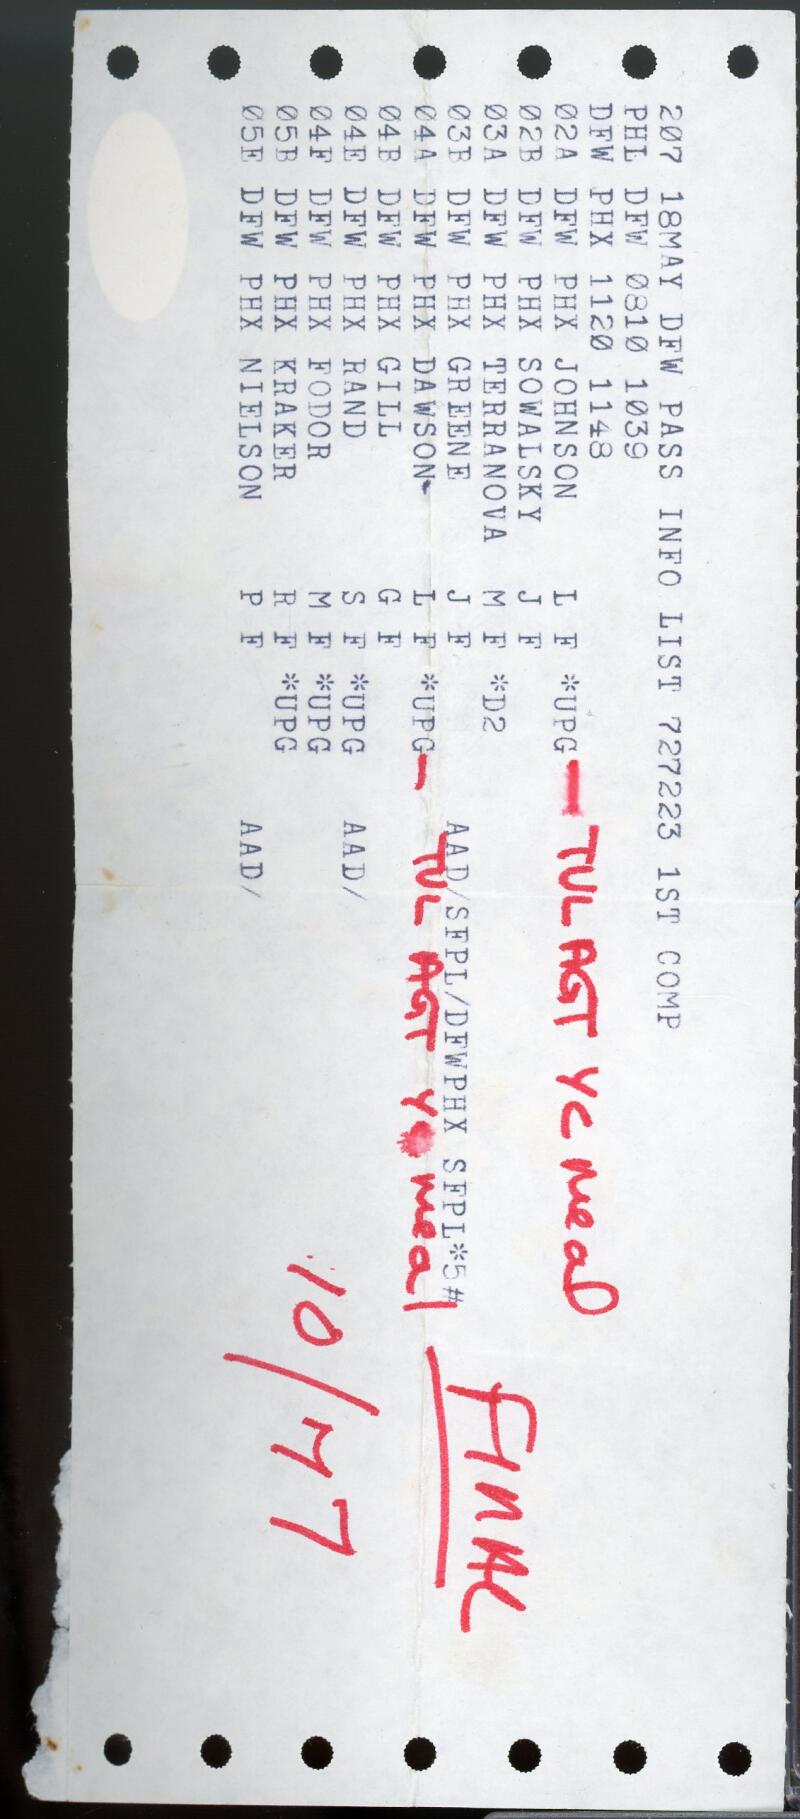 207 18MAY DFW PASS INFO LIST 727223 1ST COMP
PHL DFW 0810 1039
DFW PHX 1120 1148
02A DFW PHX JOHNSON L F *UPG — TUL AGT YC meal
02B DFW PHX SOWALSKY J F
03A DFW PHX TERRANOVA M F *D2
03B DFW PHX GREENE J F AAD/SFPL/DFWPHX SFPL*5#
04A DFW PHX DAWSON L F *UPG — TUL AGT YC meal
04B DFW PHX GILL G F
04E DFW PHX RAND S F *UPG AAD/
04F DFW PHX FODOR M F *UPG
05B DFW PHX KRAKER R F *UPG
05E DFW PHX NIELSON P F AAD/
FINAL
10/47